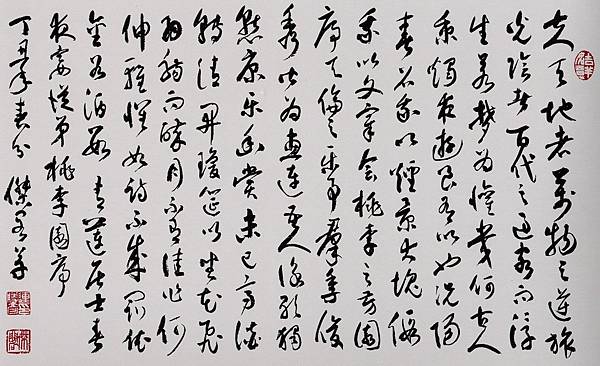 夫天地者萬物之逆旅
光陰者百代之過客而浮
生若夢為懽幾何古人
秉燭夜遊良有以也況陽
春召我以煙景大塊假
我以文章會桃李之芳園
序天倫之樂事羣季俊
秀皆為惠連吾人詠歌獨
慙康樂幽賞未已高談
轉清開瓊筵以坐花飛
羽觴而醉月不有佳作何
伸雅懷如詩不成罰依
金谷酒數 青蓮居士春
夜宴從弟桃李園序
丁丑年春分